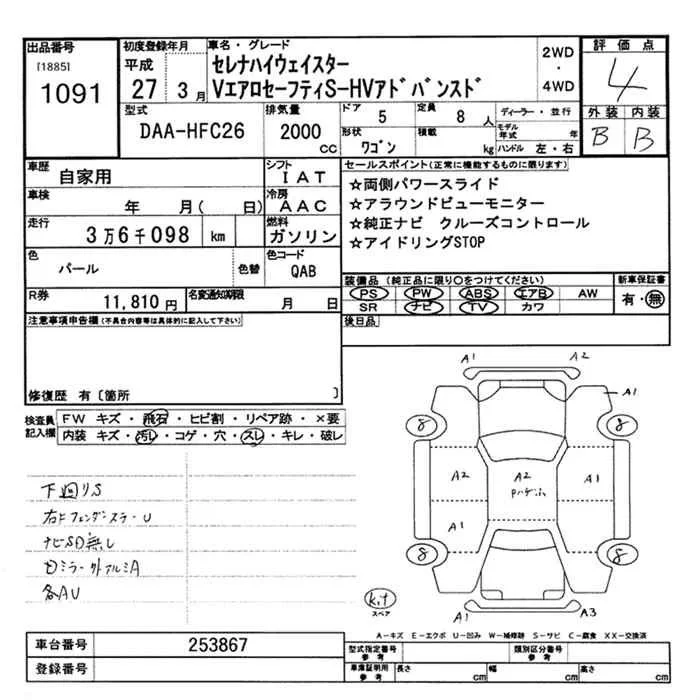 出品番号 初度登録年月 車名・グレード 2WD ・ 4WD 評価点
[1885] 1091 平成 27 3月 セレナハイウェイスター
VエアロセーフティS-HVアドバンスド 4
型式 DAA-HFC26 排気量 2000 cc ドア 5 定員 8人 ディーラー・並行 外装 内装
形状 ワゴン 積載 kg モデル年式 年 ハンドル 左・右 B B
車歴 自家用 シフト IAT セールスポイント(正常に機能するものに限ります)
車検 年 月( 日) 冷房 AAC ☆両側パワースライド
☆アラウンドビューモニター
走行 3万6千098 km 燃料 ガソリン ☆純正ナビ クルーズコントロール
☆アイドリングSTOP
色 パール 色替 色コード QAB
装備品 (純正品に限り○をつけてください) 新車保証書
PS PW ABS エアB AW 有・無
SR ナビ TV カワ
R券 11,810円 名変通知期限 月 日
後日品
注意事項申告欄(不具合内容等は具体的に記入して下さい)
修復歴 有〔箇所 〕
検査員記入欄 FW キズ・飛石・ヒビ割・リペア跡・×要
内装 キズ・汚レ・コゲ・穴・スレ・キレ・破レ
下廻りS
右FフェンダーステーU
ナビSD無し
ミラー外アルミA
各AU
A1 A2
A1
8 8
A2 A2 A1
A1
8 8
kit
スペア
A1 A3
A-キズ E-エクボ U-凹み W-補修跡 S-サビ C-腐食 XX-交換済
車台番号 253867 型式指定番号 参考 類別区分番号 参考
登録番号 車庫証明用 参考 長さ cm 幅 cm 高さ cm